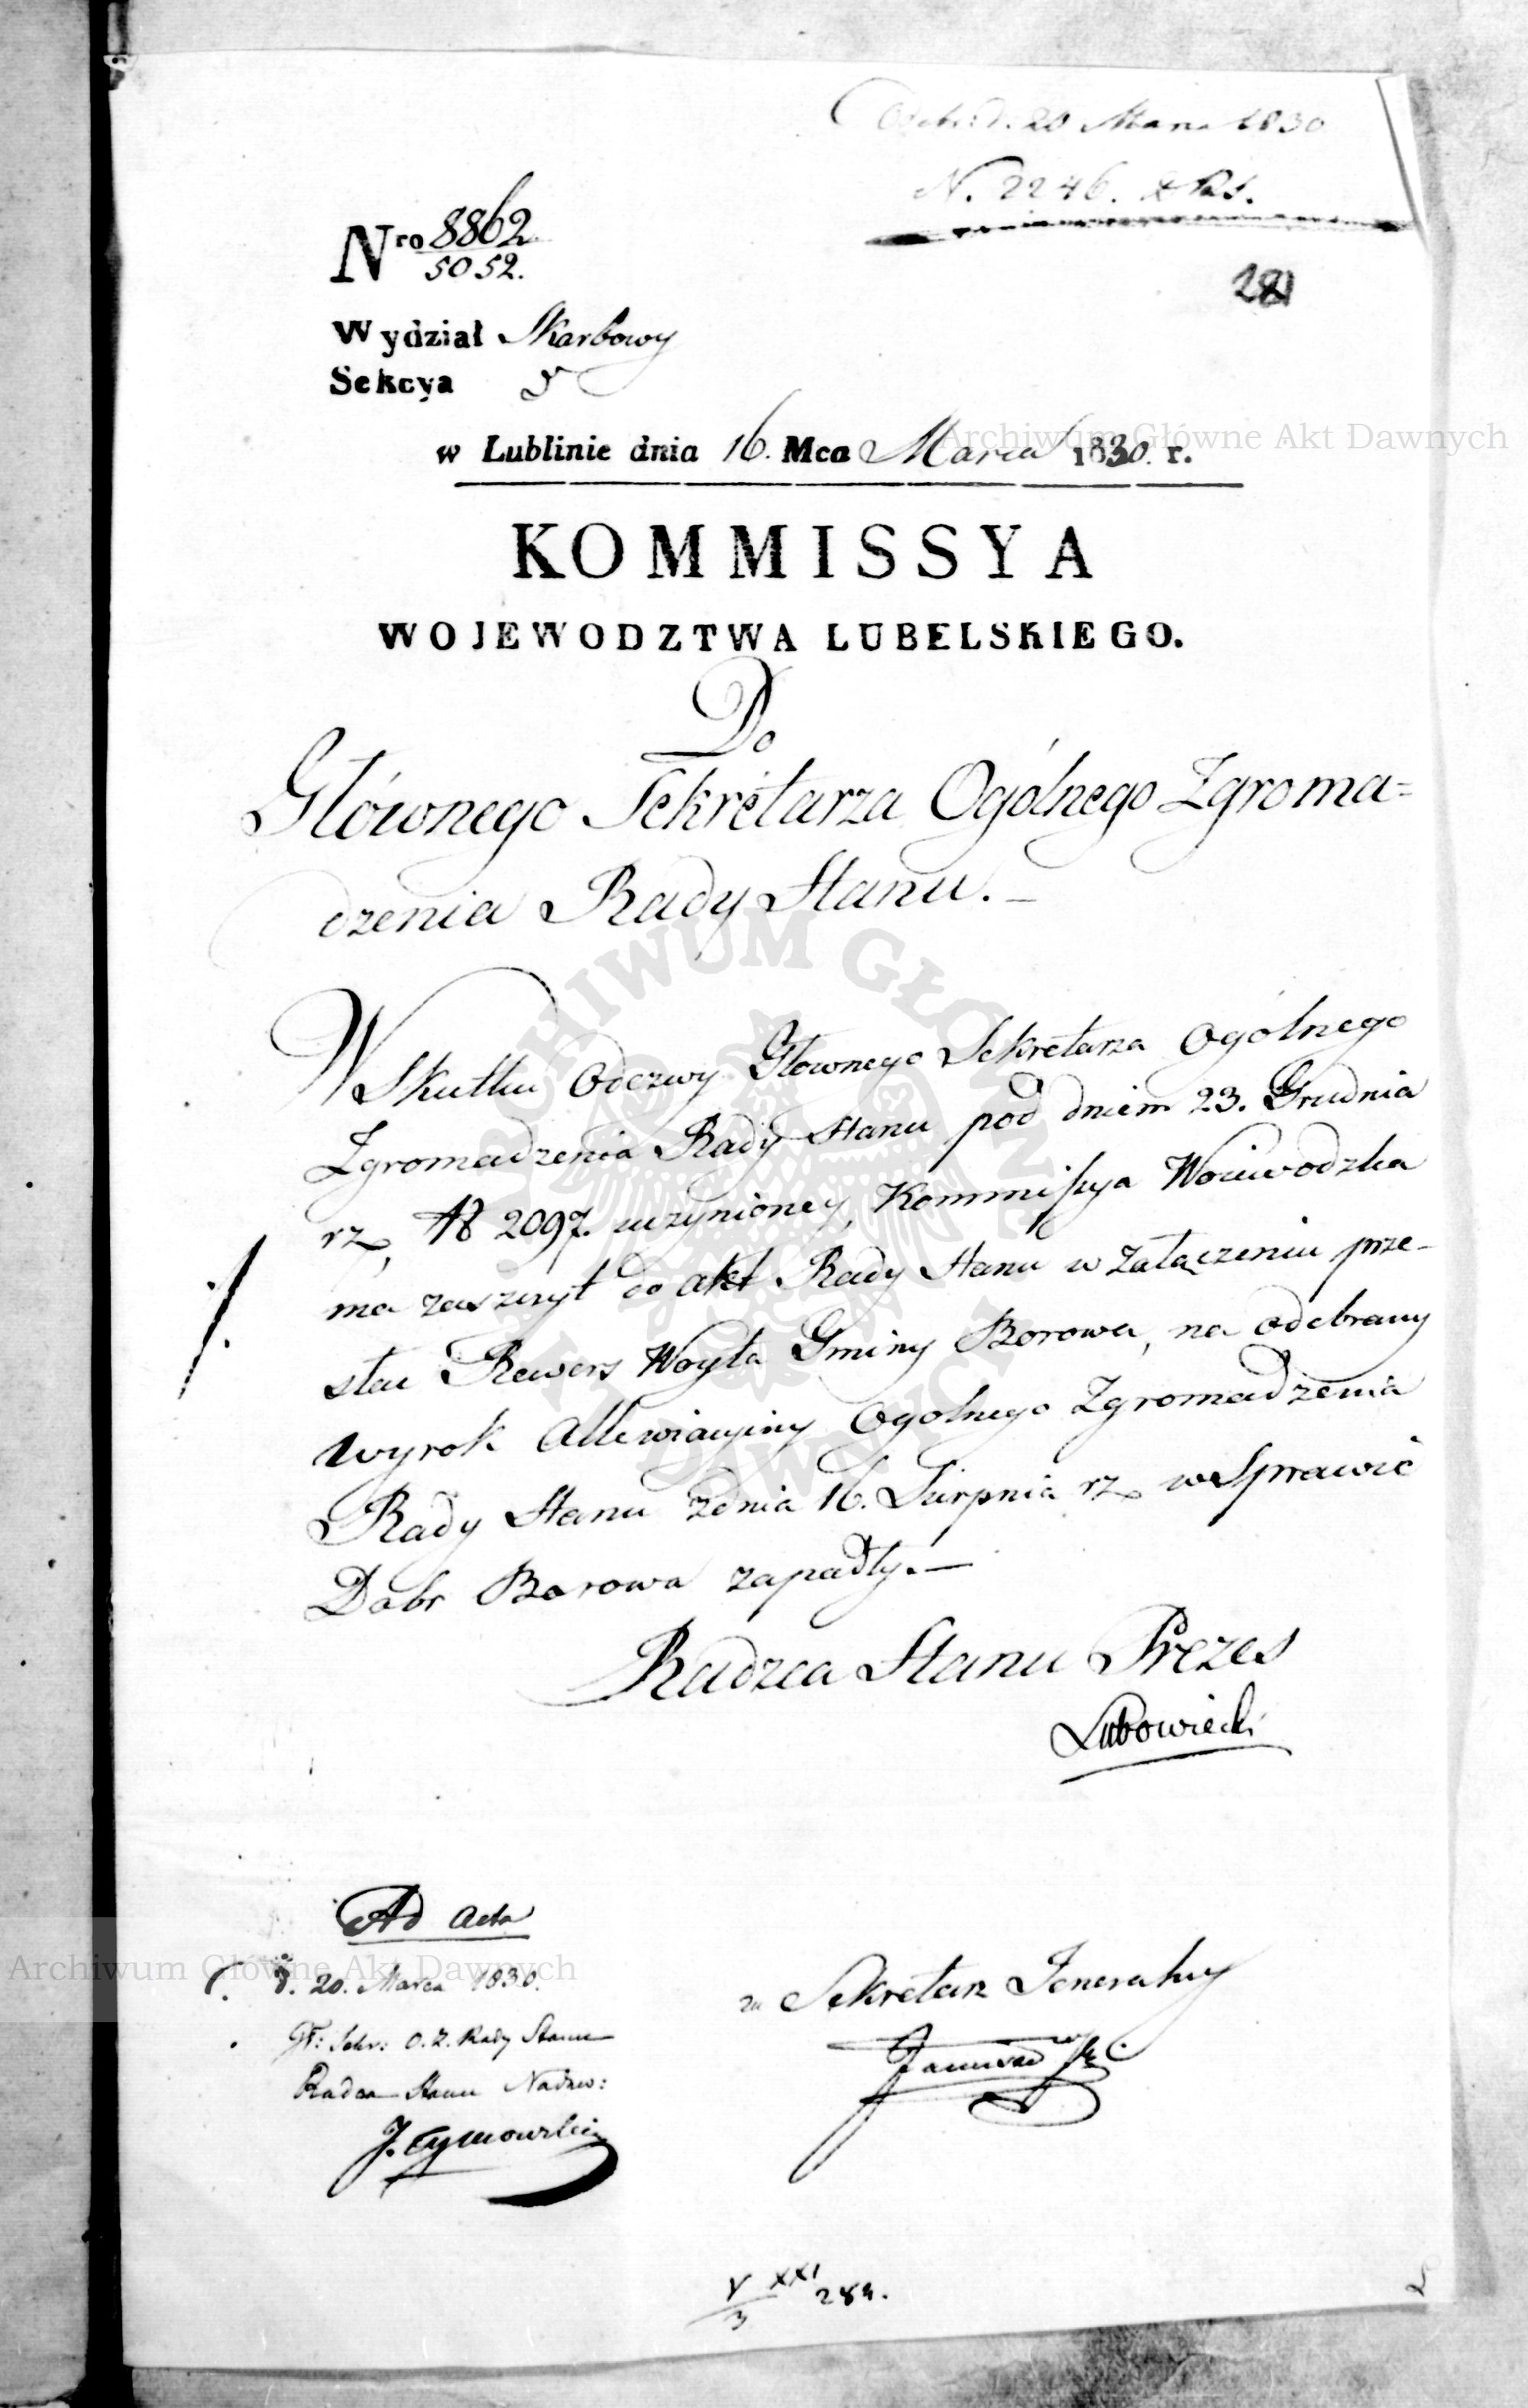 d. 20 Marca 1830
N. 2246.
281
Nro 8862
5052.
Wydział Skarbowy
Sekcya 5
w Lublinie dnia 16. Mca Marca 1830. r.
KOMMISSYA
WOJEWODZTWA LUBELSKIEGO.
Do
Głównego Sekretarza Ogólnego Zgroma=
dzenia Rady Stanu.—
W Skutku Odezwy Głownego Sekretarza Ogólnego
Zgromadzenia Rady Stanu pod dniem 23. Grudnia
rz, № 2097. uczynioney, Kommissya Woiewodzka
ma zaszczyt do akt Rady Stanu w załączeniu prze-
słać Rewers Woyta Gminy Borowa, na odebrany
wyrok Allewiacyiny Ogolnego Zgromadzenia
Rady Stanu z dnia 16. Sierpnia rz w Sprawie
Dobr Borowa zapadły.—
Radzca Stanu Prezes
Lubowiecki
Ad acta
d. 20. Marca 1830.
Gł: Sekr: O. Z. Rady Stanu
Radca Stanu Nadzw:
J. Tymowski
za Sekretarz Jeneralny
V XXI
3 284.
2
Archiwum Główne Akt Dawnych
Archiwum Główne Akt Dawnych
ARCHIWUM GŁÓWNE AKT DAWNYCH